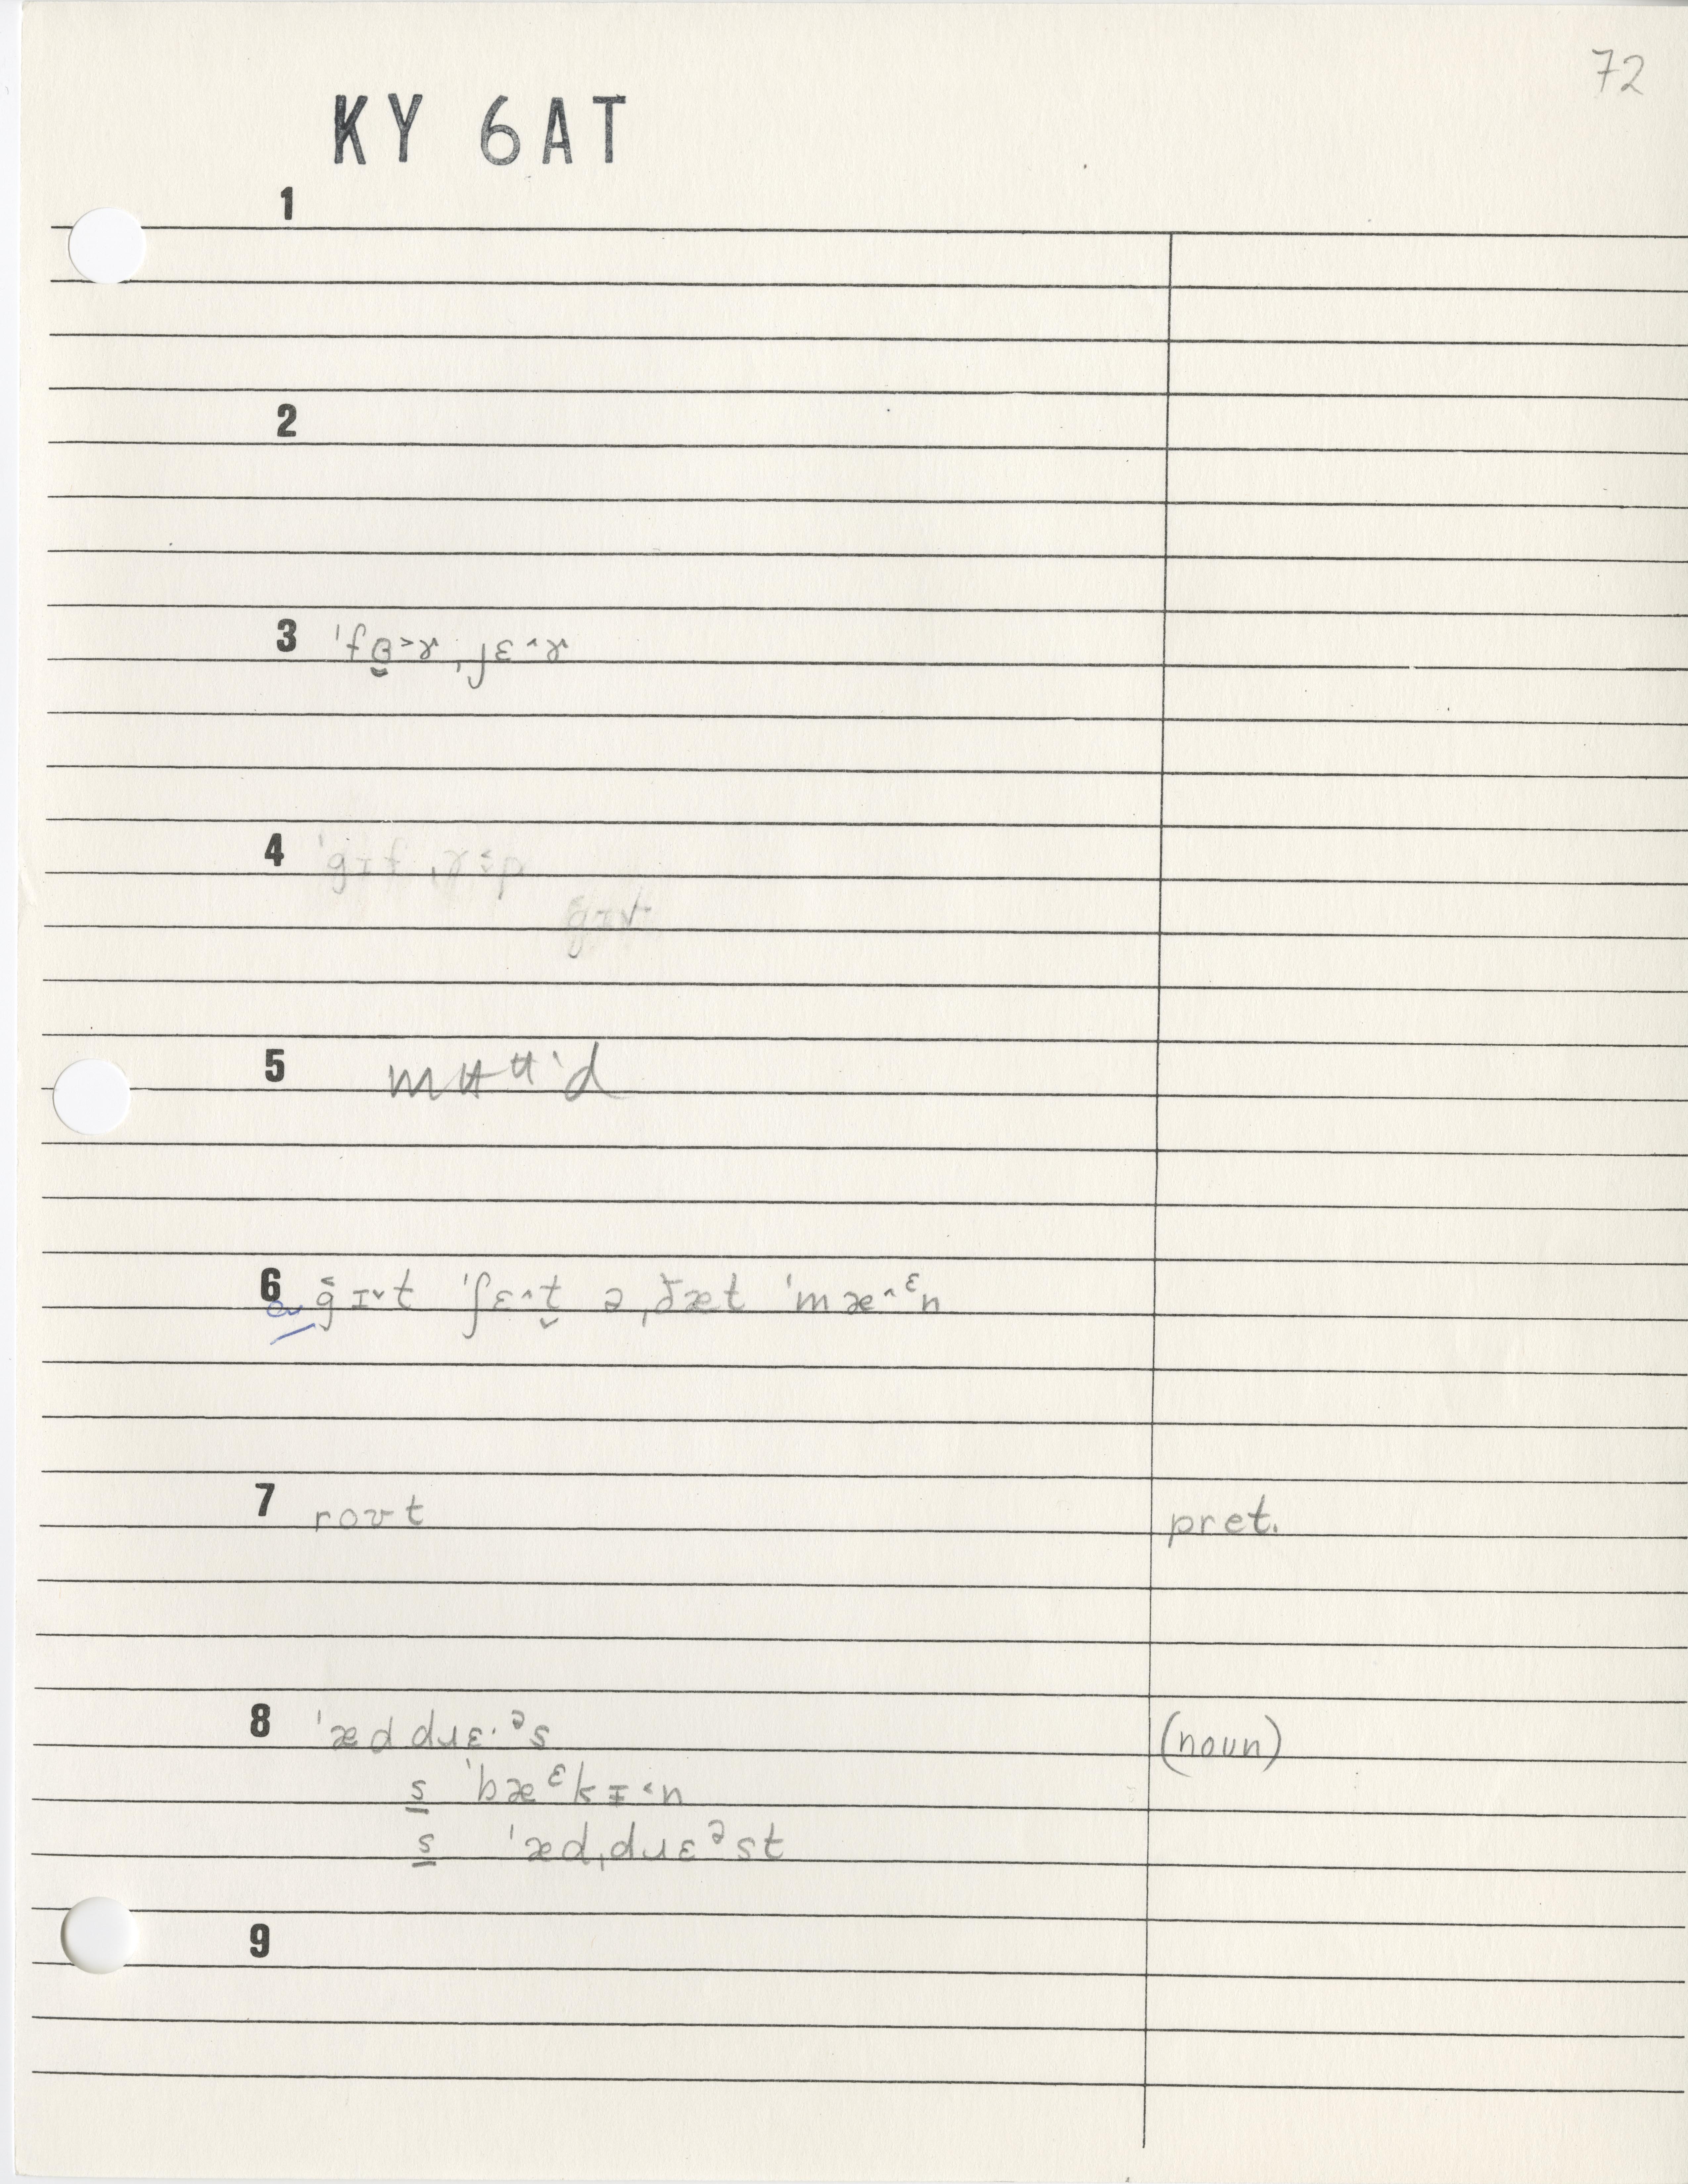 72
KY 6AT
1
2
3 ˈfɵ̬˃ɤ ˌʃɛ˄ɤ
4
5 mʉᶶˈd
6 g̑ɪ˅t ˈʃɛ˄t̬ ə ˌðæt ˈmæ˄ᵋn
7 roʊt pret.
8 ˈæd dɹɛ·ᵊs (noun)
s ˈbæᵋkɪ˂n
s ˈædˌdɹɛᵊst
9